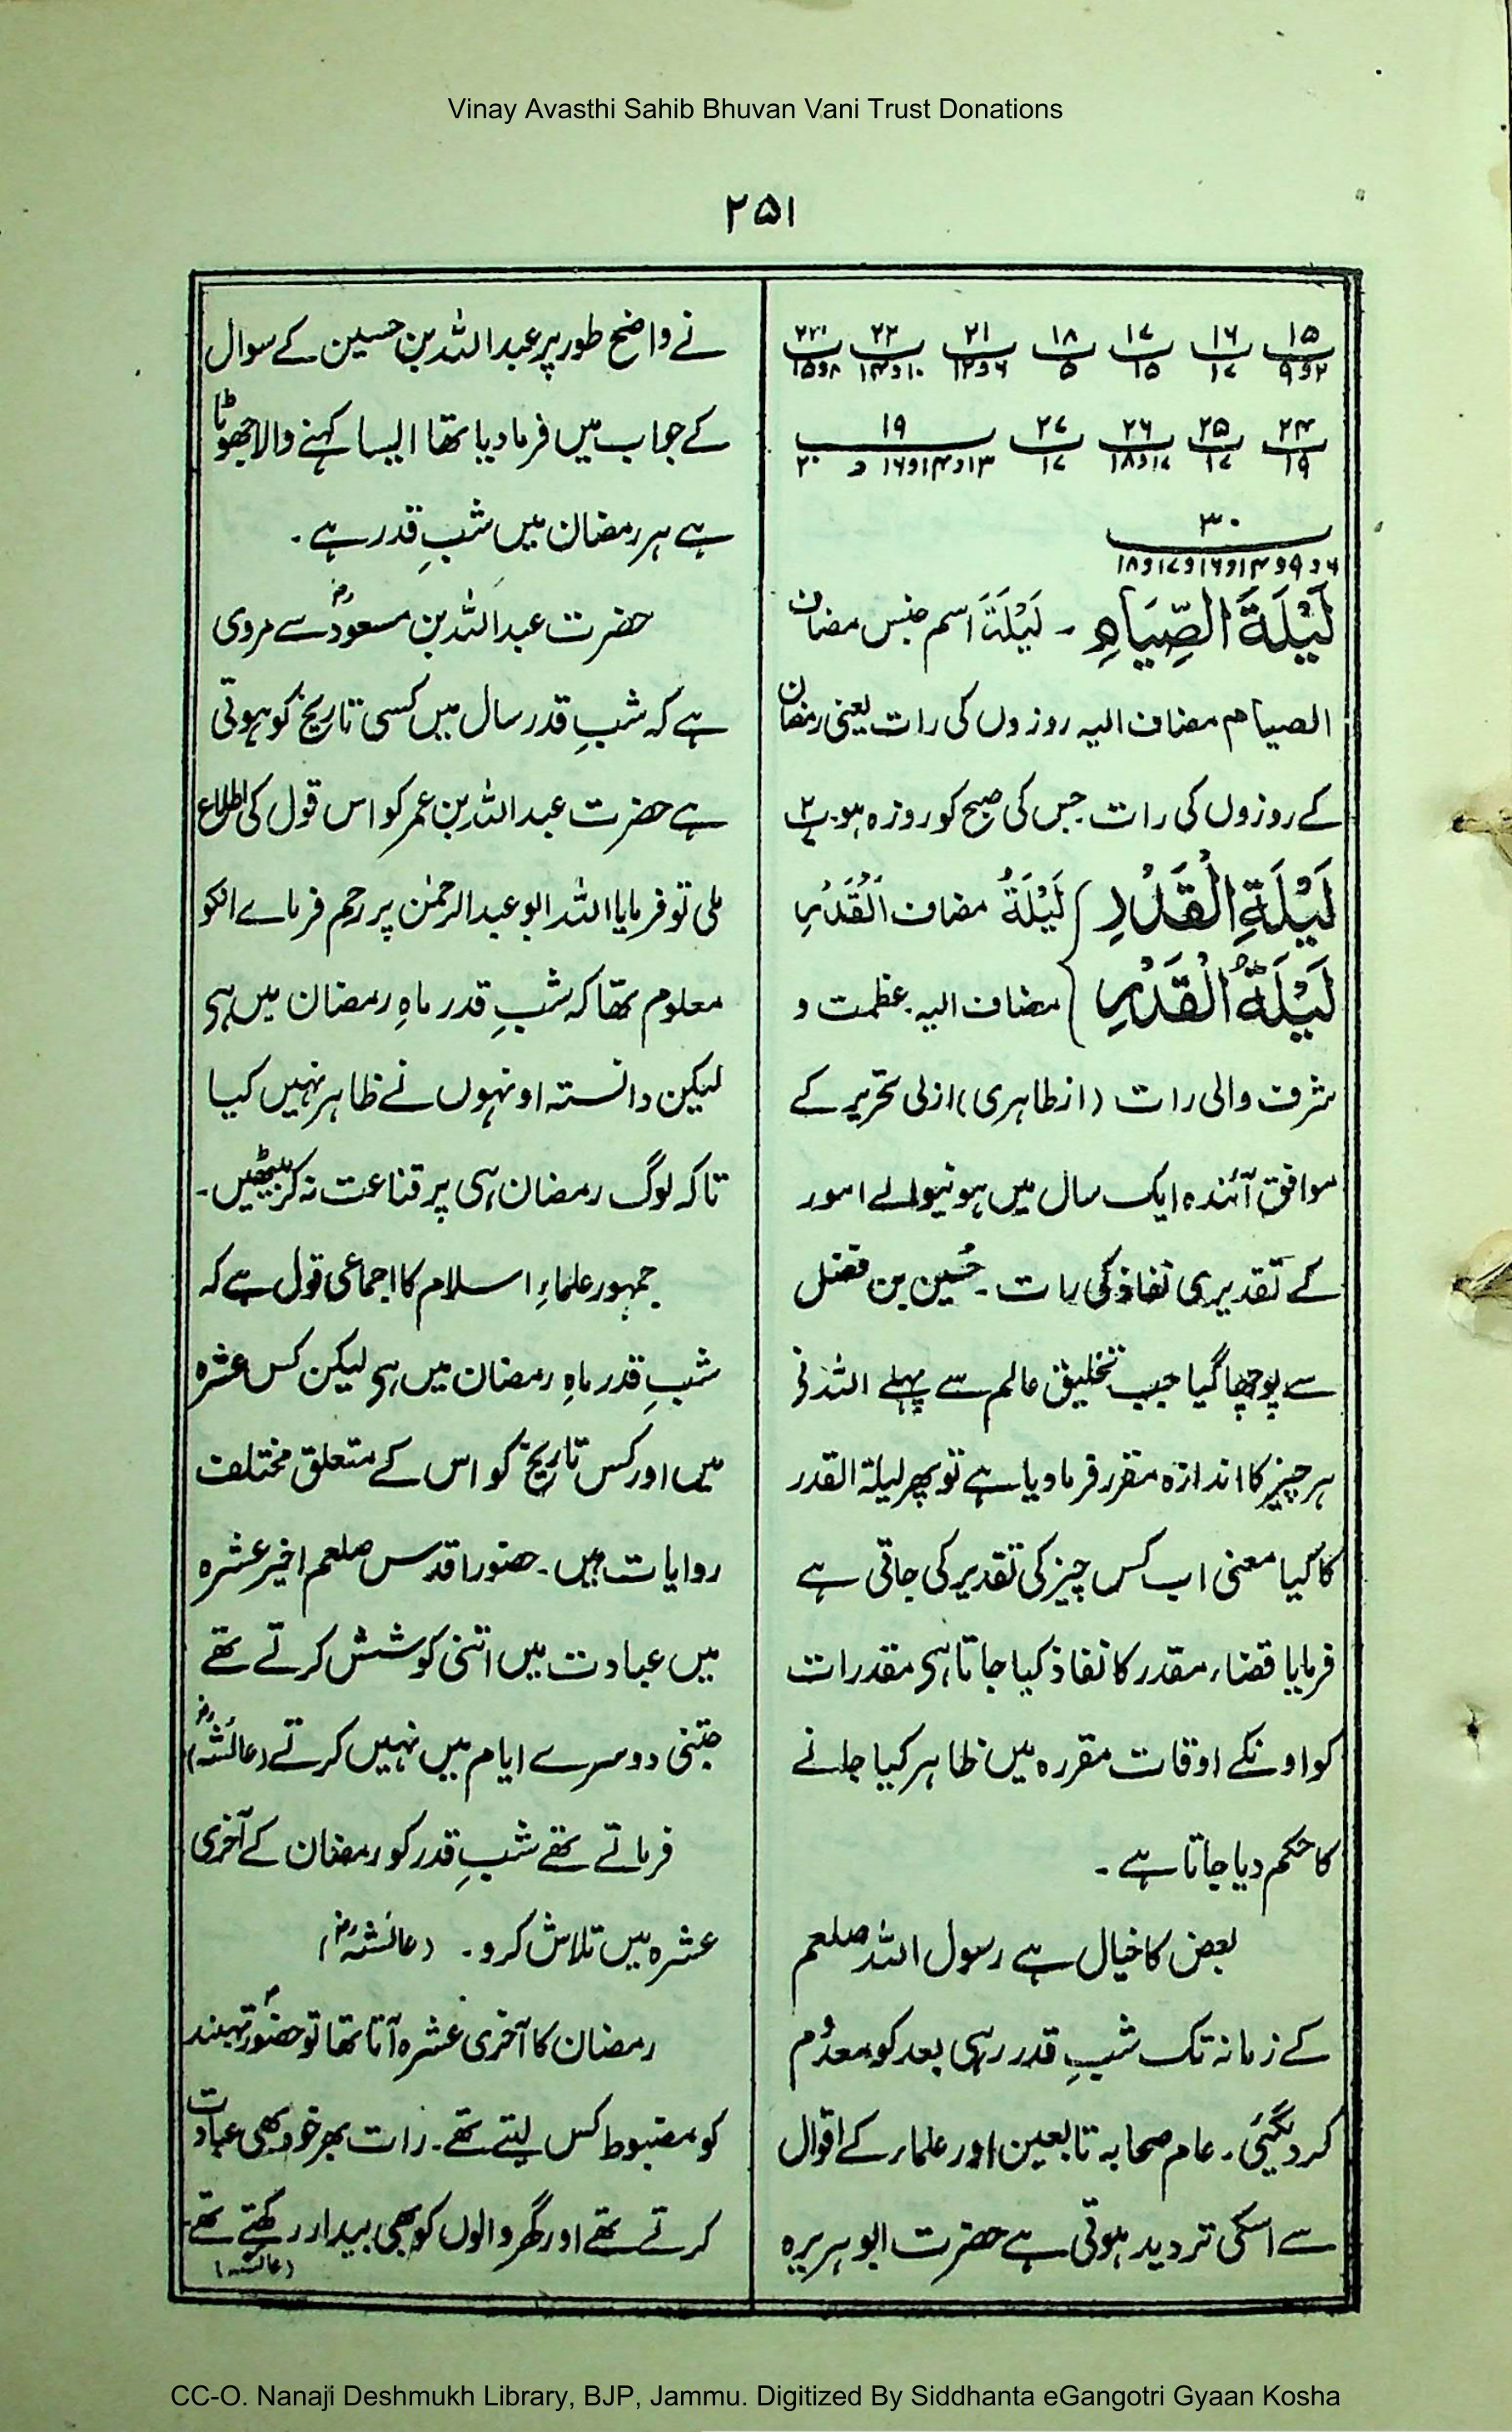 Vinay Avasthi Sahib Bhuvan Vani Trust Donations
۲۵۱
۱۵ ۱۶ ۱۷ ۱۸ ۲۱ ۲۲ ۲۳
۲و۹ ۱۷ ۱۵ ۵ ۶و۱۲ ۱۰و۱۴ ۸و۱۵
۲۴ ۲۵ ۲۶ ۲۷ ۱۹
۱۹ ۱۷ ۱۷و۱۸ ۱۷ ۱۳و۱۴و۱۶ و ۲۰
۳۰
۶و۹و۱۴و۱۶و۱۷و۱۸
لَيْلَةَ الصِّيَامِ ۔ لَيْلَةَ اسم جنس مضاف
الصیام مضاف الیہ روزوں کی رات یعنی رمضان
کے روزوں کی رات جس کی صبح کو روزہ ہو۔ ۲
لَيْلَةِ الْقَدْرِ } لَيْلَةُ مضاف اَلْقَدْرِ
لَيْلَةُ الْقَدْرِ } مضاف الیہ۔ عظمت و
شرف والی رات (ازطاہری) ازلی تحریر کے
موافق آئندہ ایک سال میں ہونیوالے امور
کے تقدیری نفاذ کی رات ۔ حُسین بن فضل
سے پوچھا گیا جب تخلیق عالم سے پہلے اللہ نی
ہر چیز کا اندازہ مقرر فرما دیا ہے تو پھر لیلۃ القدر
کا کیا معنی اب کس چیز کی تقدیر کی جاتی ہے
فرمایا قضاء مقدر کا نفاذ کیا جاتا ہی مقدرات
کو اونکے اوقات مقررہ میں ظاہر کیا جانے
کا حکم دیا جاتا ہے ۔
بعض کا خیال ہے رسول اللہ صلعم
کے زمانہ تک شبِ قدر رہی بعد کو معدُم
کر دیگئی ۔ عام صحابہ تابعین اور علماء کے اقوال
سے اسکی تردید ہوتی ہے حضرت ابو ہریرہ
نے واضح طور پر عبد اللہ بن حسین کے سوال
کے جواب میں فرما دیا تھا ایسا کہنے والا جھوٹا
ہے ہر رمضان میں شبِ قدر ہے ۔
حضرت عبد اللہ بن مسعودؓ سے مروی
ہے کہ شبِ قدر سال میں کسی تاریخ کو ہوتی
ہے حضرت عبد اللہ بن عمر کو اس قول کی اطلاع
ملی تو فرمایا اللہ ابو عبد الرحمٰن پر رحم فرماے انکو
معلوم تھا کہ شبِ قدر ماہِ رمضان میں ہی
لیکن دانستہ اونہوں نے ظاہر نہیں کیا
تاکہ لوگ رمضان ہی پر قناعت نہ کر بیٹھیں ۔
جمہور علماءِ اسلام کا اجماعی قول ہے کہ
شبِ قدر ماہِ رمضان میں ہی لیکن کس عشرہ
میں اور کس تاریخ کو اس کے متعلق مختلف
روایات ہیں ۔ حضور اقدس صلعم اخیر عشرہ
میں عبادت میں اتنی کوشش کرتے تھے
جتنی دوسرے ایام میں نہیں کرتے (عائشہؓ)
فرماتے تھے شبِ قدر کو رمضان کے آخری
عشرہ میں تلاش کرو ۔ (عائشہؓ)
رمضان کا آخری عشرہ آتا تھا تو حضورؐ تہبند
کو مضبوط کس لیتے تھے ۔ رات بھر خود بھی عبادت
کرتے تھے اور گھر والوں کو بھی بیدار رکھتے تھے
(عائشہ)
CC-O. Nanaji Deshmukh Library, BJP, Jammu. Digitized By Siddhanta eGangotri Gyaan Kosha